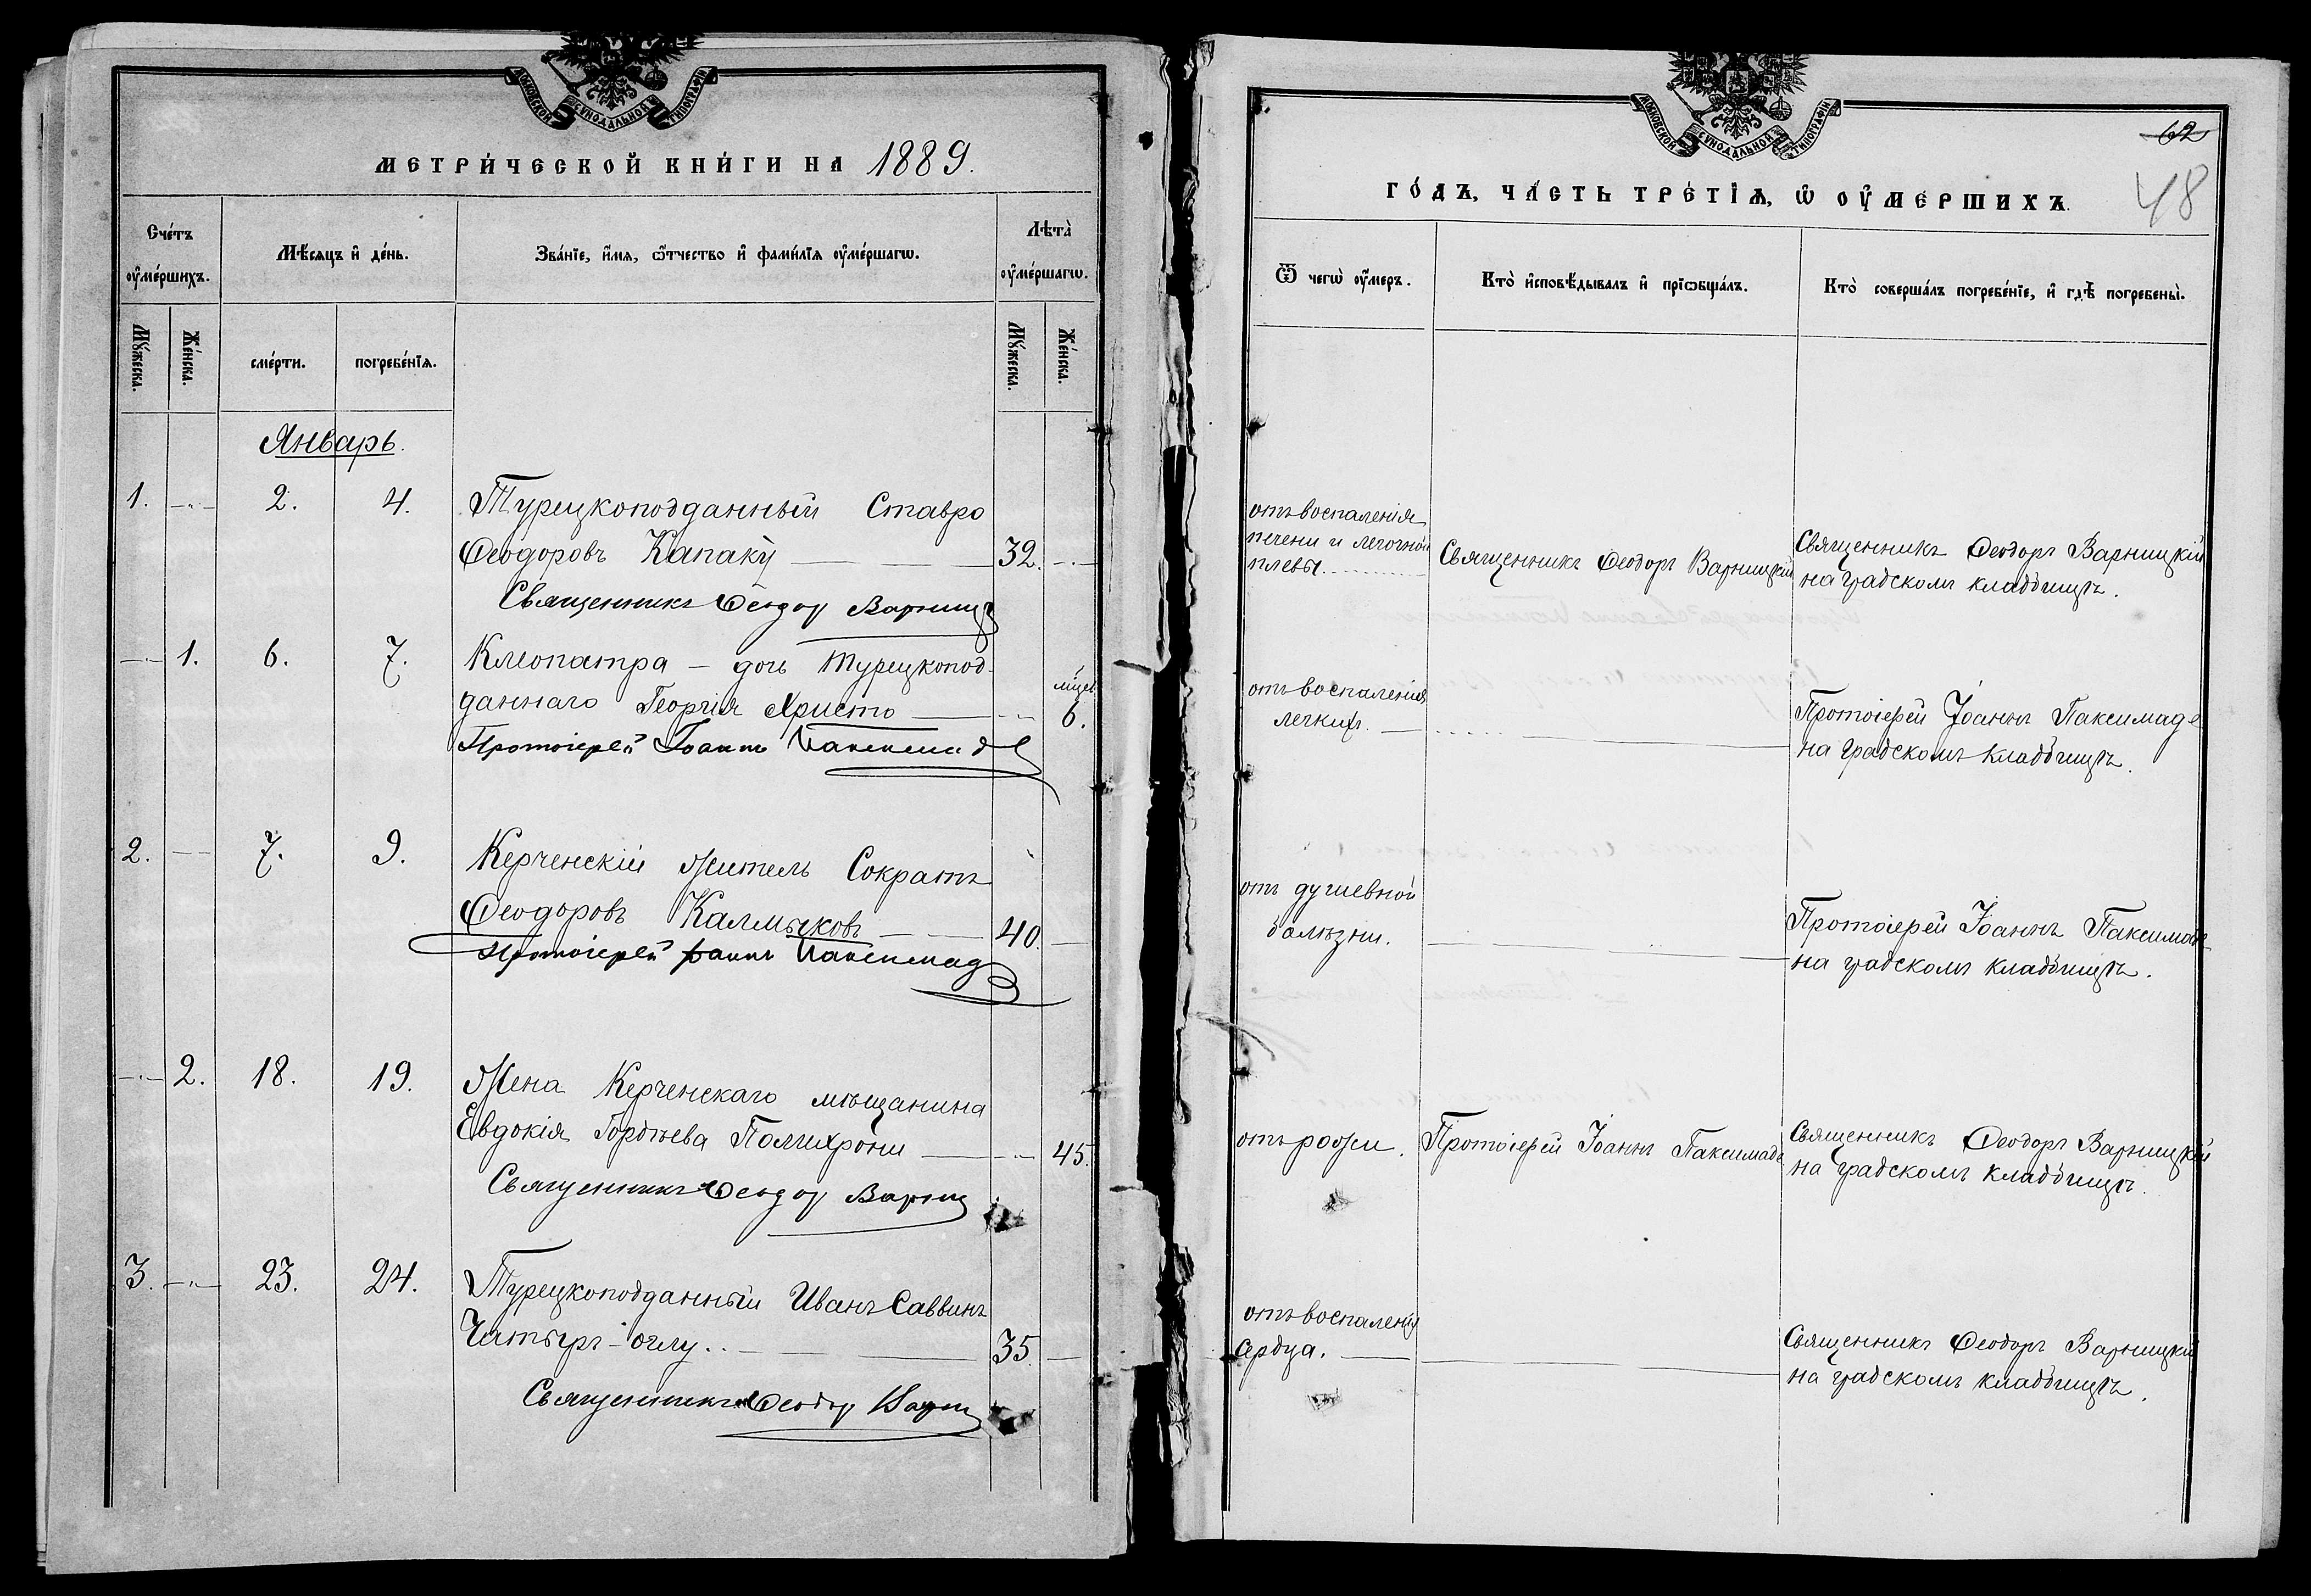 МОСКОВСКОЙ СУНОДАЛЬНОЙ ТИПОГРАФІИ
МЕТРИ́ЧЕСКОЙ КНИ́ГИ НА 1889.
Сче́тъ ᲂу҆ме́ршихъ.
Мѣ́сяцъ и҆ де́нь.
Зва́нїе, и҆́мѧ, ѻ҆́тчество и҆ фами́лїѧ ᲂу҆ме́ршагѡ.
Лѣта̀ ᲂу҆ме́ршагѡ.
Мꙋ́жеска.
Же́нска.
сме́рти.
погребе́нїѧ.
Мꙋ́жеска.
Же́нска.
Январь.
1. —„— 2. 4. Турецкоподданный Ставро
Ѳеодоровъ Капаку — 32. —„—
Священникъ Ѳеодор Варниц
—„— 1. 6. 7. Клеопатра – дочь Турецкопод-
даннаго Георгія Христо — —„— мѣсяц. 6.
Протоіерей Іоаннъ Паксимад
2. — 7. 9. Керченскій житель Сократъ
Ѳеодоровъ Калмыковъ — 40. —
Протоіерей Іоаннъ Паксимад
—„— 2. 18. 19. Жена Керченскаго мѣщанина
Евдокія Гордѣева Полихрони — —„— 45.
Священникъ Ѳеодор Варниц
3. —„— 23. 24. Турецкоподданный Иванъ Саввинъ
Чатыръ-оглу.. — 35. —
Священникъ Ѳеодор Варни
МОСКОВСКОЙ СУНОДАЛЬНОЙ ТИПОГРАФІИ
62
48
ГО́ДЪ, ЧА́СТЬ ТРЕ́ТЇѦ, Ѡ҆ ОУ҆МЕ́РШИХЪ.
Ѿ чегѡ̀ ᲂу҆́меръ.
Кто̀ и҆сповѣ́дывалъ и҆ прїѡбща́лъ.
Кто̀ соверша́лъ погребе́нїе, и҆ гдѣ̀ погребены̀.
отъ воспаленія
печени и легочной
плевы.
Священникъ Ѳеодоръ Варницкій
Священникъ Ѳеодоръ Варницкій
на градскомъ кладбищѣ.
отъ воспаленія
легкихъ. —
Протоіерей Іоаннъ Паксимаде
на градскомъ кладбищѣ.
отъ душевной
болѣзни.
Протоіерей Іоаннъ Паксимаде
на градскомъ кладбищѣ.
отъ рожи.
Протоіерей Іоаннъ Паксимаде
Священникъ Ѳеодоръ Варницкій
на градскомъ кладбищѣ.
отъ воспаленія
сердца. —
Священникъ Ѳеодоръ Варницкій
на градскомъ кладбищѣ.